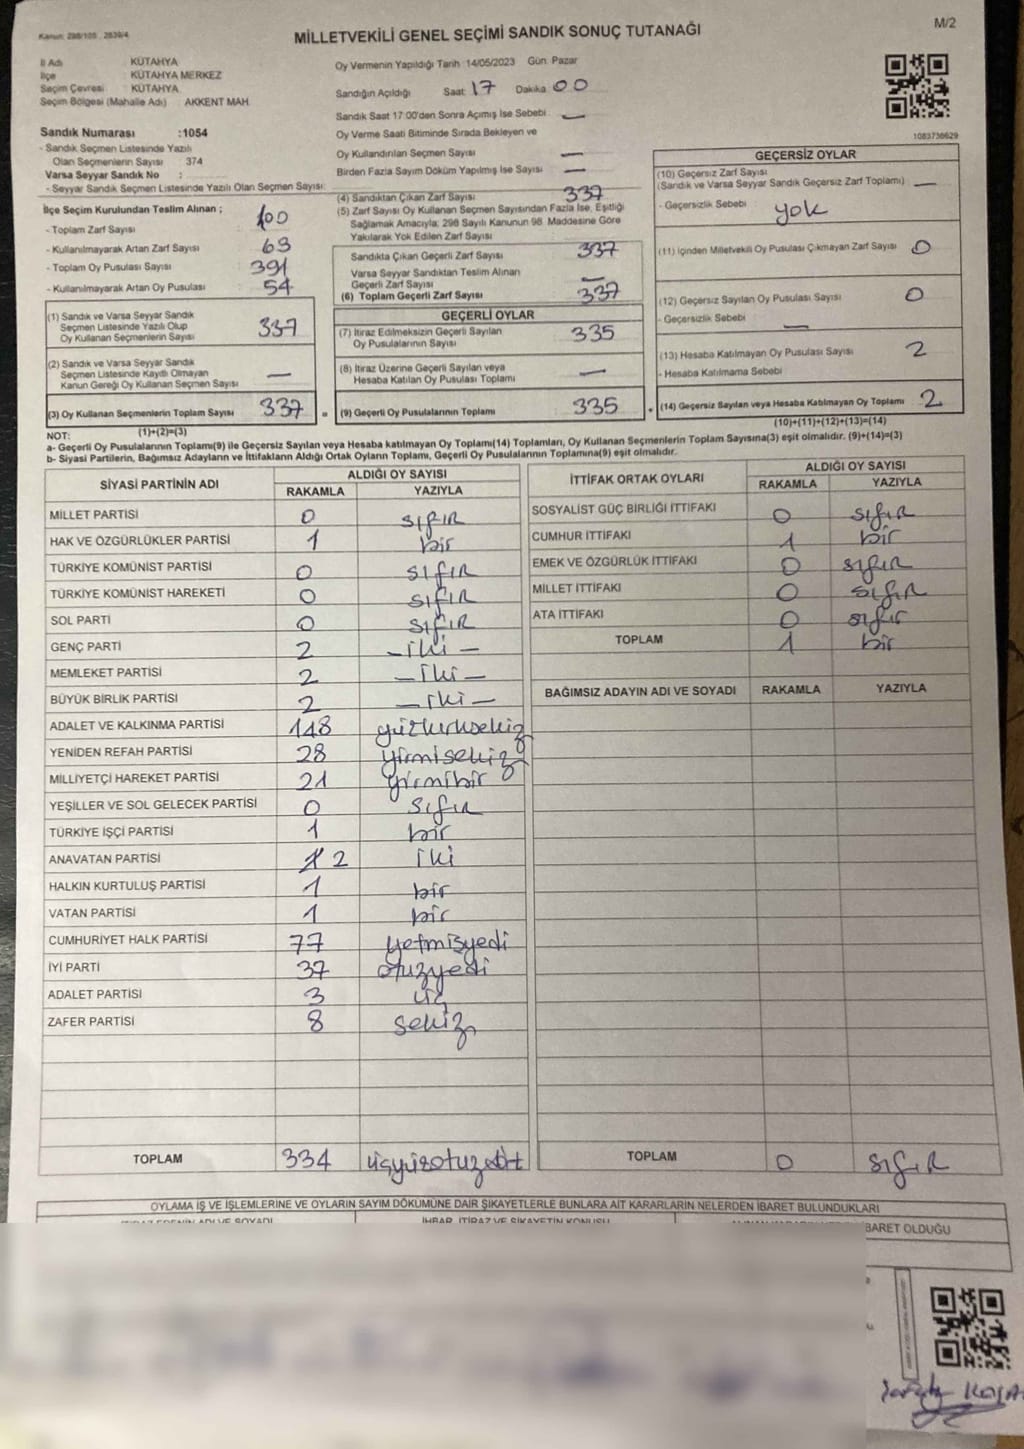 Kanun: 298/105, 2839/4
MİLLETVEKİLİ GENEL SEÇİMİ SANDIK SONUÇ TUTANAĞI
M/2
İl Adı KÜTAHYA
İlçe KÜTAHYA MERKEZ
Seçim Çevresi : KÜTAHYA
Seçim Bölgesi (Mahalle Adı) AKKENT MAH.
Sandık Numarası :1054
- Sandık Seçmen Listesinde Yazılı
Olan Seçmenlerin Sayısı 374
Varsa Seyyar Sandık No :
- Seyyar Sandık Seçmen Listesinde Yazılı Olan Seçmen Sayısı:
Oy Vermenin Yapıldığı Tarih 14/05/2023 Gün: Pazar
Sandığın Açıldığı Saat: 17 Dakika 00
Sandık Saat 17:00'den Sonra Açımış İse Sebebi —
Oy Verme Saati Bitiminde Sırada Bekleyen ve
Oy Kullandırılan Seçmen Sayısı —
Birden Fazla Sayım Döküm Yapılmış İse Sayısı —
1083736629
İlçe Seçim Kurulundan Teslim Alınan ;
- Toplam Zarf Sayısı : 400
- Kullanılmayarak Artan Zarf Sayısı 63
- Toplam Oy Pusulası Sayısı : 391
- Kullanılmayarak Artan Oy Pusulası 54
(1) Sandık ve Varsa Seyyar Sandık
Seçmen Listesinde Yazılı Olup
Oy Kullanan Seçmenlerin Sayısı 337
(2) Sandık ve Varsa Seyyar Sandık
Seçmen Listesinde Kayıtlı Olmayan
Kanun Gereği Oy Kullanan Seçmen Sayısı —
(3) Oy Kullanan Seçmenlerin Toplam Sayısı 337
(1)+(2)=(3)
(4) Sandıktan Çıkan Zarf Sayısı 337
(5) Zarf Sayısı Oy Kullanan Seçmen Sayısından Fazla İse, Eşitliği
Sağlamak Amacıyla; 298 Sayılı Kanunun 98. Maddesine Göre
Yakılarak Yok Edilen Zarf Sayısı
Sandıkta Çıkan Geçerli Zarf Sayısı 337
Varsa Seyyar Sandıktan Teslim Alınan
Geçerli Zarf Sayısı —
(6) Toplam Geçerli Zarf Sayısı 337
GEÇERLİ OYLAR
(7) İtiraz Edilmeksizin Geçerli Sayılan
Oy Pusulalarının Sayısı 335
(8) İtiraz Üzerine Geçerli Sayılan veya
Hesaba Katılan Oy Pusulası Toplamı —
= (9) Geçerli Oy Pusulalarının Toplamı 335
GEÇERSİZ OYLAR
(10) Geçersiz Zarf Sayısı
(Sandık ve Varsa Seyyar Sandık Geçersiz Zarf Toplamı) —
- Geçersizlik Sebebi : yok
(11) İçinden Milletvekili Oy Pusulası Çıkmayan Zarf Sayısı 0
(12) Geçersiz Sayılan Oy Pusulası Sayısı 0
- Geçersizlik Sebebi —
(13) Hesaba Katılmayan Oy Pusulası Sayısı 2
- Hesaba Katılmama Sebebi
+ (14) Geçersiz Sayılan veya Hesaba Katılmayan Oy Toplamı 2
(10)+(11)+(12)+(13)=(14)
NOT:
a- Geçerli Oy Pusulalarının Toplamı(9) ile Geçersiz Sayılan veya Hesaba katılmayan Oy Toplamı(14) Toplamları, Oy Kullanan Seçmenlerin Toplam Sayısına(3) eşit olmalıdır. (9)+(14)=(3)
b- Siyasi Partilerin, Bağımsız Adayların ve İttifakların Aldığı Ortak Oyların Toplamı, Geçerli Oy Pusulalarının Toplamına(9) eşit olmalıdır.
SİYASİ PARTİNİN ADI ALDIĞI OY SAYISI
RAKAMLA YAZIYLA
MİLLET PARTİSİ 0 sıfır
HAK VE ÖZGÜRLÜKLER PARTİSİ 1 bir
TÜRKİYE KOMÜNİST PARTİSİ 0 sıfır
TÜRKİYE KOMÜNİST HAREKETİ 0 sıfır
SOL PARTİ 0 sıfır
GENÇ PARTİ 2 – iki –
MEMLEKET PARTİSİ 2 – iki –
BÜYÜK BİRLİK PARTİSİ 2 – iki –
ADALET VE KALKINMA PARTİSİ 148 yüzkırksekiz
YENİDEN REFAH PARTİSİ 28 yirmisekiz
MİLLİYETÇİ HAREKET PARTİSİ 21 yirmibir
YEŞİLLER VE SOL GELECEK PARTİSİ 0 sıfır
TÜRKİYE İŞÇİ PARTİSİ 1 bir
ANAVATAN PARTİSİ 2 iki
HALKIN KURTULUŞ PARTİSİ 1 bir
VATAN PARTİSİ 1 bir
CUMHURİYET HALK PARTİSİ 77 yetmişyedi
İYİ PARTİ 37 otuzyedi
ADALET PARTİSİ 3 üç
ZAFER PARTİSİ 8 sekiz
TOPLAM 334 üçyüzotuzdört
İTTİFAK ORTAK OYLARI ALDIĞI OY SAYISI
RAKAMLA YAZIYLA
SOSYALİST GÜÇ BİRLİĞİ İTTİFAKI 0 sıfır
CUMHUR İTTİFAKI 1 bir
EMEK VE ÖZGÜRLÜK İTTİFAKI 0 sıfır
MİLLET İTTİFAKI 0 sıfır
ATA İTTİFAKI 0 sıfır
TOPLAM 1 bir
BAĞIMSIZ ADAYIN ADI VE SOYADI RAKAMLA YAZIYLA
TOPLAM 0 sıfır
OYLAMA İŞ VE İŞLEMLERİNE VE OYLARIN SAYIM DÖKÜMÜNE DAİR ŞİKAYETLERLE BUNLARA AİT KARARLARIN NELERDEN İBARET BULUNDUKLARI
İTİRAZ EDENİN ADI VE SOYADI İHBAR, İTİRAZ VE ŞİKAYETİN KONUSU İBARET OLDUĞU